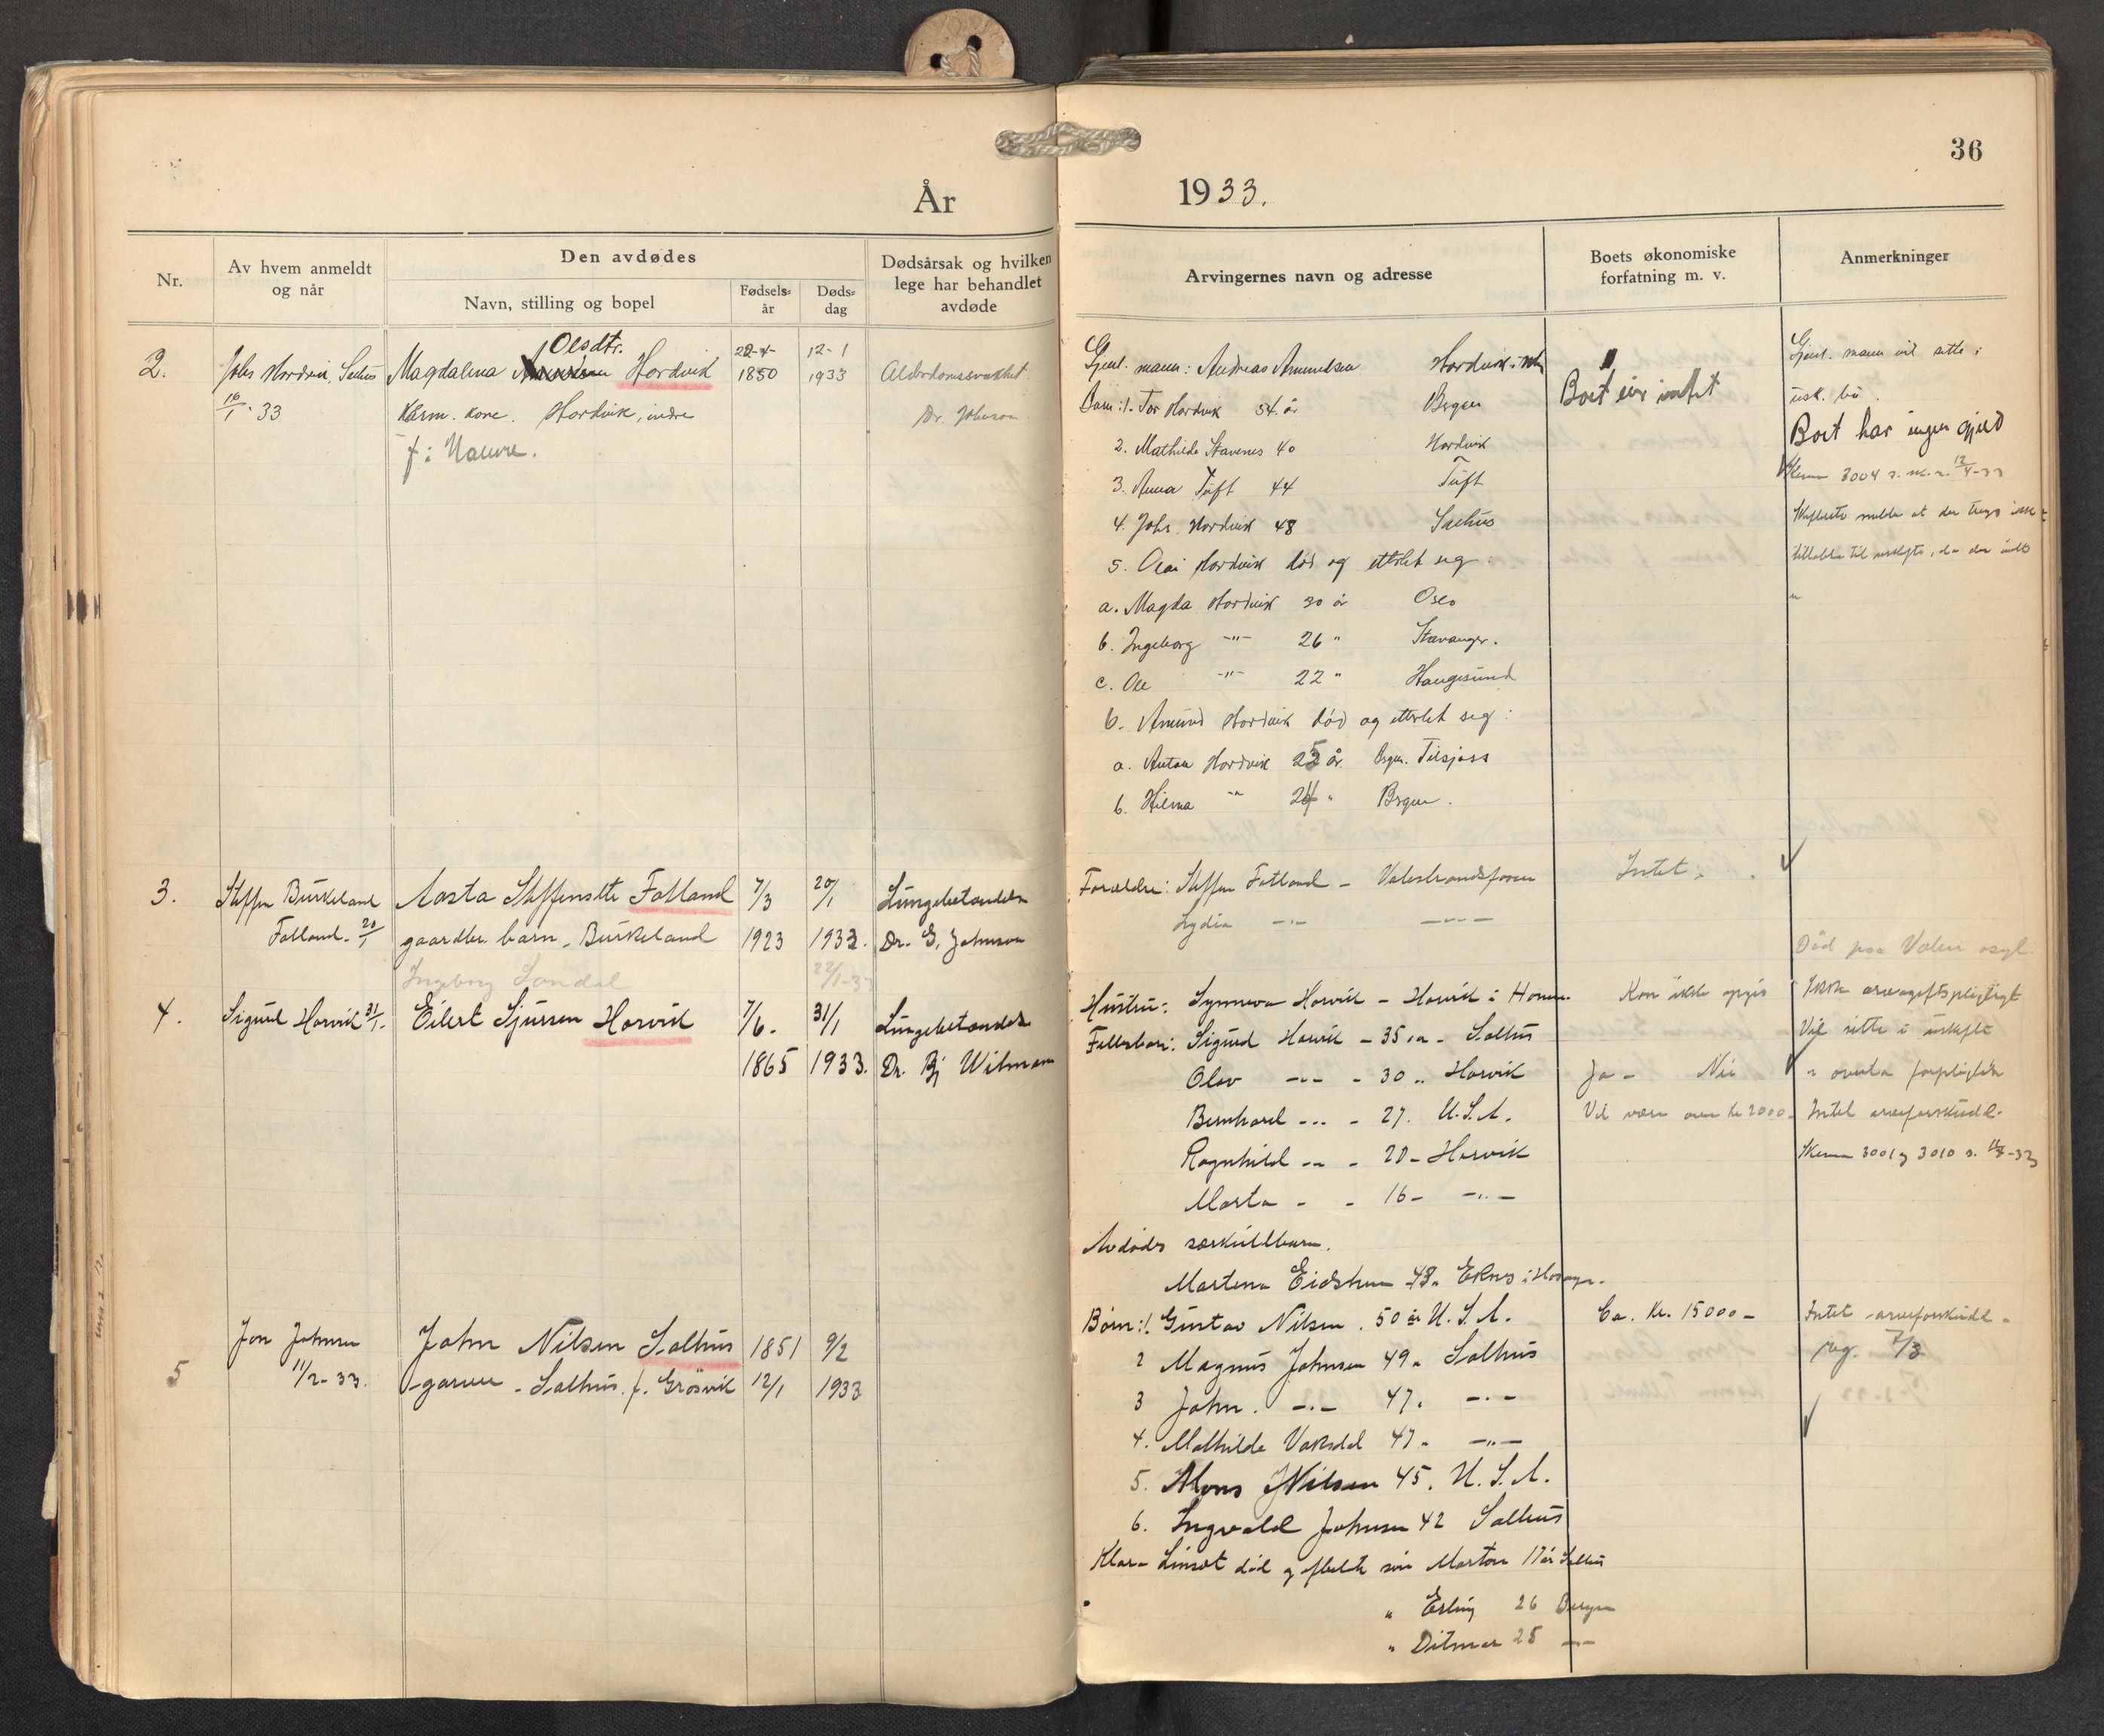 36
År 1933.
Nr.
Av hvem anmeldt
og når
Den avdødes
Navn, stilling og bopel
Fødsels-
år
Døds-
dag
Dødsårsak og hvilken
lege har behandlet
avdøde
Arvingernes navn og adresse
Boets økonomiske
forfatning m. v.
Anmerkninger
2.
Johs Hordvik, Salhus
16/1 - 33
Olesdtr.
Magdalena Hordvik
kårm. kone. Hordvik, indre
f:
22-4-
1850
12-1
1933
Alderdomssvakhet
Dr. Johnson
Gjenl. mann: Andreas Amundsen Hordvik
Barn: 1. Tor Hordvik 54 år Bergen
2. Mathilde Stavenes 40 Hordvik
3. Anna Tuft 44 Tuft
4. Johs. Hordvik 48 Salhus
5. Olai Hordvik død og etterlot seg:
a. Magda Hordvik 30 år Oslo
b. Ingeborg -"- 26 " Stavanger.
c. Ole -"- 22 " Haugesund
6. Amund Hordvik død og etterlot seg:
a. Anton Hordvik år Bergen. Tilsjøss
b. Hilma -"- 24 " Bergen.
Boet eier intet
Gjenl. mann vil sitte i
usk. bu.
Boet har ingen gjeld
3004 s. 12/4-33
3.
Steffen Birkeland
Fotland. 20/1
Aasta Steffensdtr Fotland
gaardbr. barn. Birkeland
Ingeborg Sandal
7/3
1923
20/1
1933.
22/1-33
Lungebetændelse
Dr. G. Johnson
Forældre: Steffen Fotland - Valestrandsfossen
Lydia -"- -"-
Intet.
Død paa Valen asyl
4.
Sigurd Horvik 31/1.
Eilert Sjursen Horvik
7/6.
1865
31/1
1933.
Lungebetændelse
Dr. Bj Wilmann
Hustru: Synneva Horvik - Horvik i Hamre.
Fellesbarn: Sigurd Horvik - 35 - Salhus
Olav -"- - 30 " Horvik
Bernhard -"- - 27. U.S.A.
Ragnhild -"- - 20 - Horvik
Marta - - 16 - -"-
Avdødes særkullbarn.
Martina Eidsheim 43. Eknes i Hosanger.
Kan ikke opgis
Ja - Nei
Vil være over kr 2000.
Ikke arveavgiftspligtigt
Vil sitte i uskifte
overta forpligtelse
Intet arveforskudd.
3001 og 3010 s.
5
Jon Johnsen
11/2-33.
John Nilsen Salhus
garver - Salhus. f. Grøsvik
1851
12/1
9/2
1933
Børn: 1. Gustav Nilsen. 50 år U.S.A.
2 Magnus Johnsen 49 " Salhus
3 John. -"- 47. -"-
4. Mathilde Vaksdal 47 " -"-
5. Mons J Nilsen 45. U.S.A.
6. Ingvald Johnsen 42 Salhus
Klara død og efterlot Morton 17 år Salhus
" Erling 26 Bergen
" Ditmar 25 -"-
Ca. Kr. 15000 -
Intet arveforskudd.
reg. 7/3